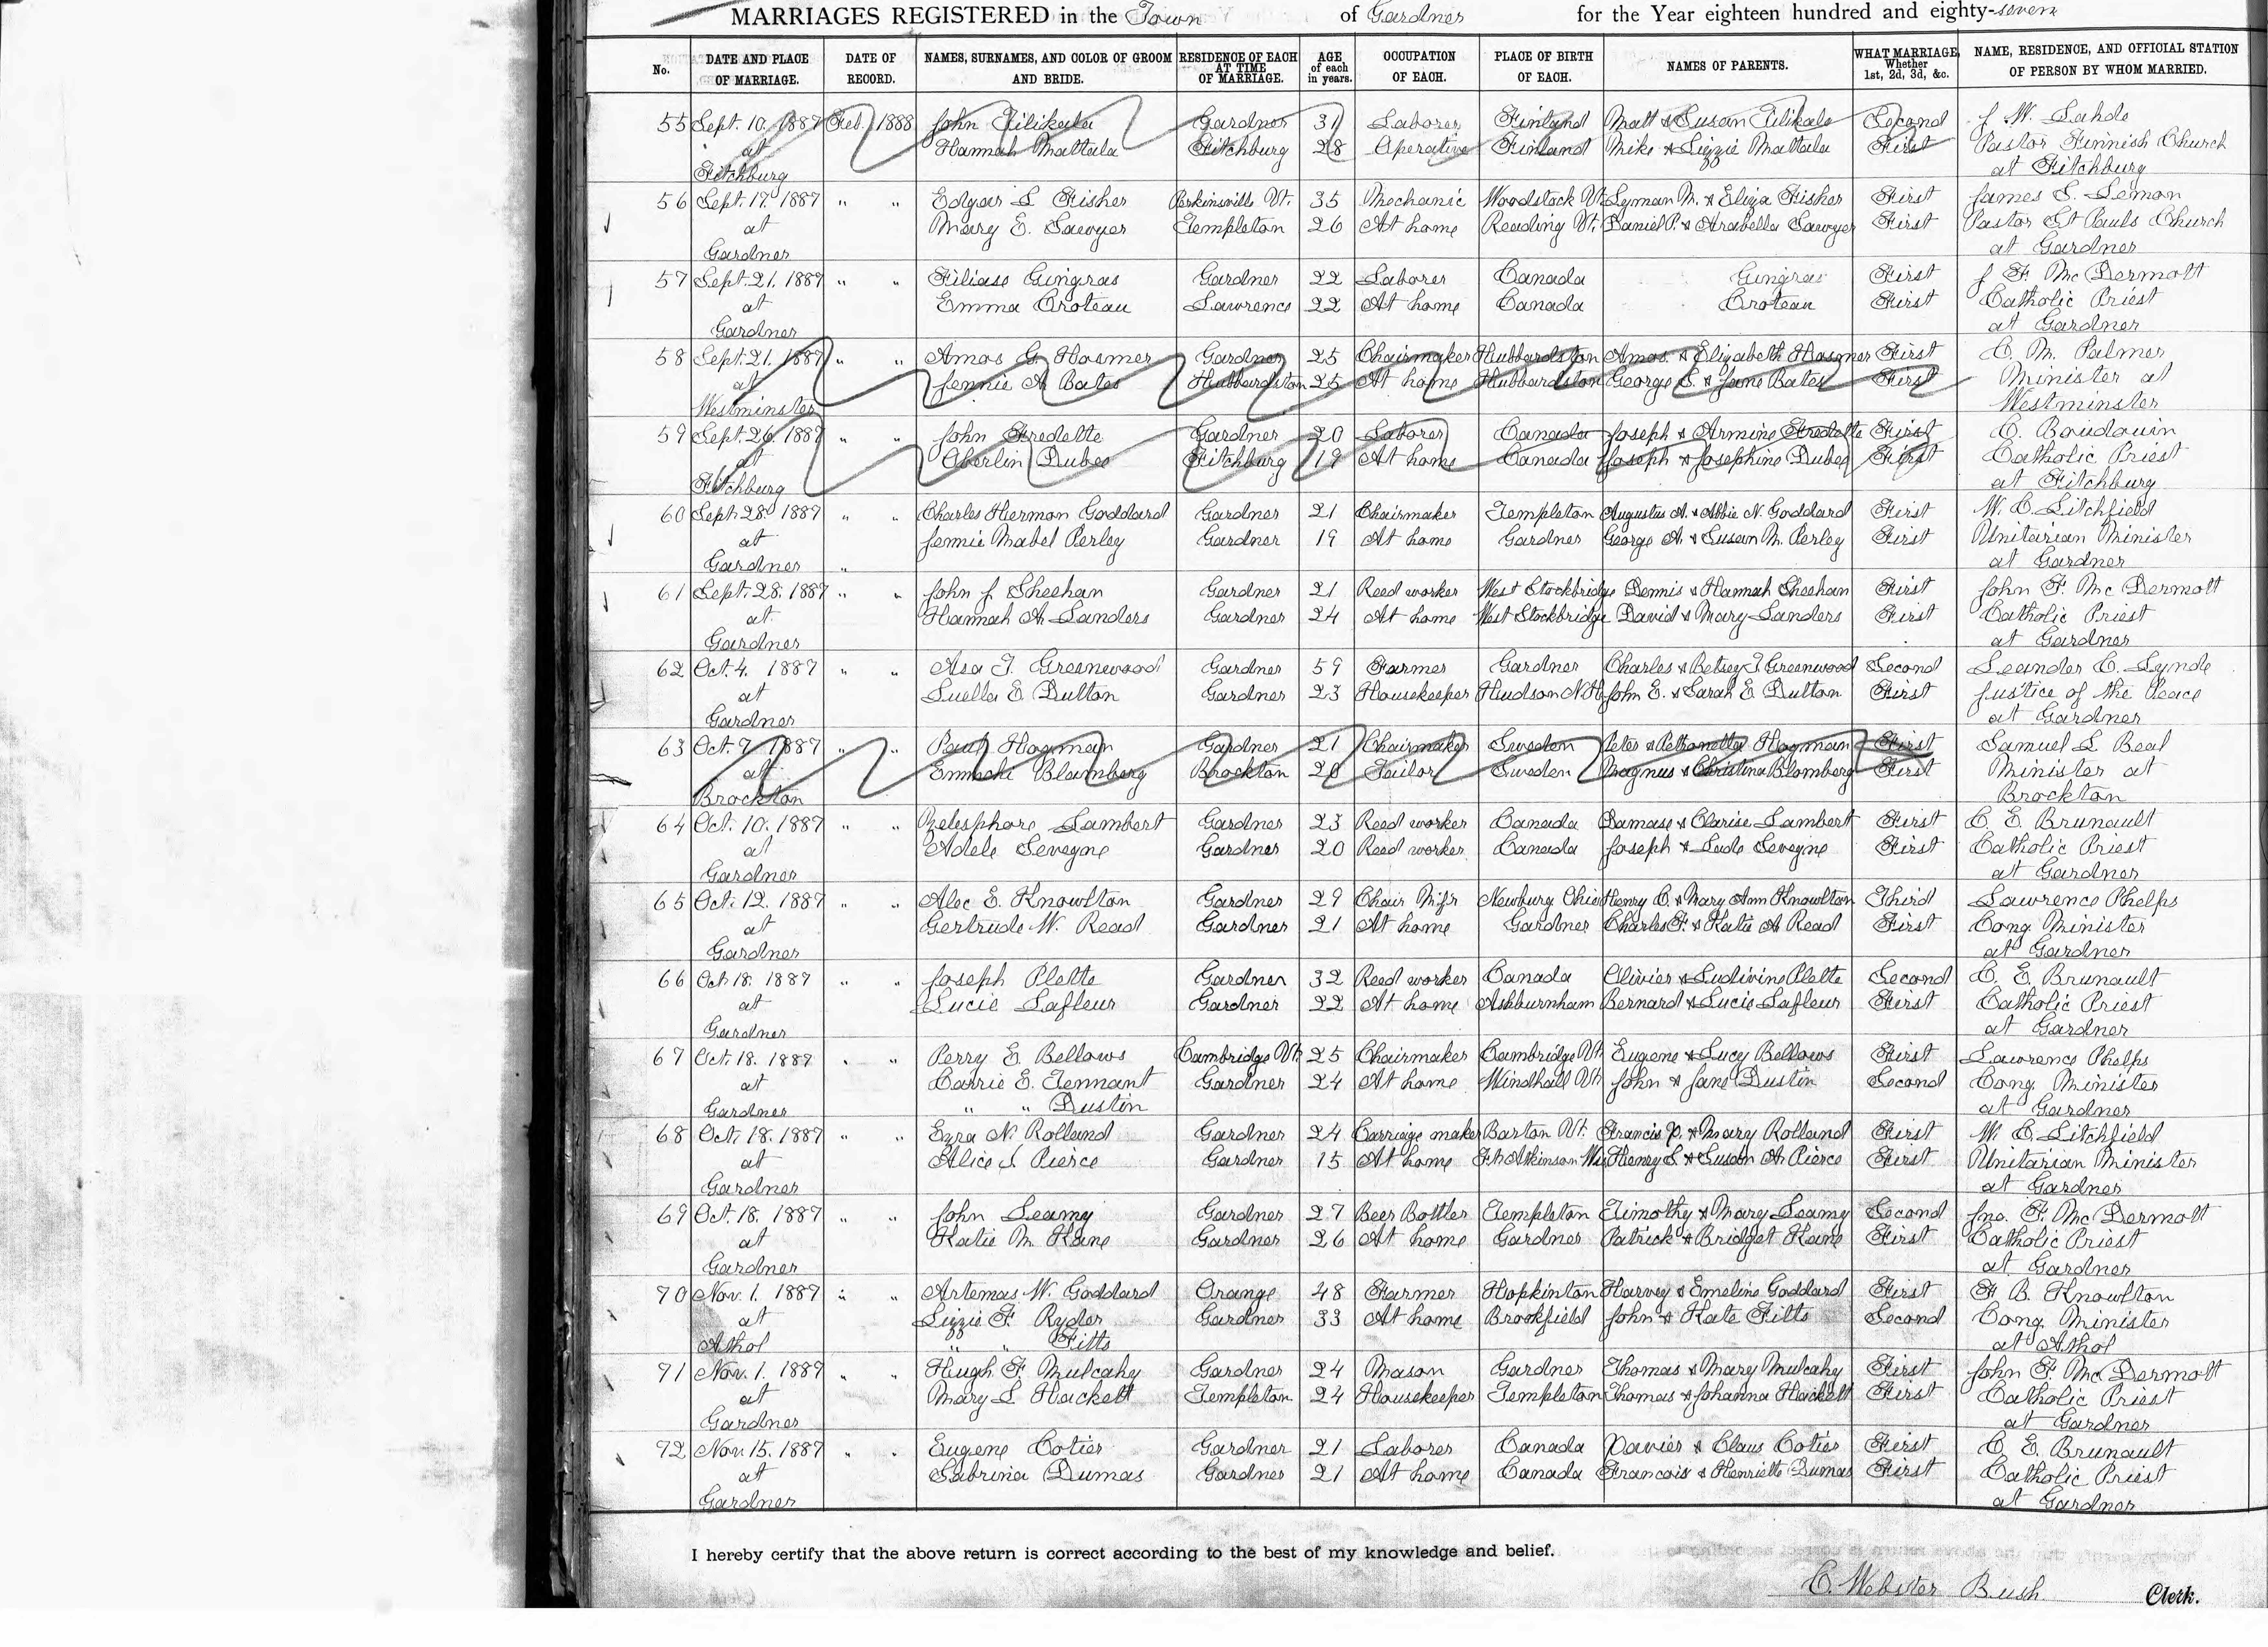 MARRIAGES REGISTERED in the Town of Gardner for the Year eighteen hundred and eighty-seven
No. DATE AND PLACE OF MARRIAGE. DATE OF RECORD. NAMES, SURNAMES, AND COLOR OF GROOM AND BRIDE. RESIDENCE OF EACH AT TIME OF MARRIAGE. AGE of each in years. OCCUPATION OF EACH. PLACE OF BIRTH OF EACH. NAMES OF PARENTS. WHAT MARRIAGE, Whether 1st, 2d, 3d, &c. NAME, RESIDENCE, AND OFFICIAL STATION OF PERSON BY WHOM MARRIED.
55 Sept. 10. 1887 Feb. 1888 John Filikala Gardner 31 Laborer Finland Matt & Susan Filikala Second J. W. Lahde
at Hannah Mattala Fitchburg 28 Operative Finland Mike & Lizzie Mattala First Pastor Finnish Church
Fitchburg at Fitchburg
56 Sept. 17. 1887 " " Edgar L Fisher Perkinsville Vt. 35 Mechanic Woodstock Vt. Lyman M. & Eliza Fisher First James S. Lemon
at Mary E. Sawyer Templeton 26 At home Reading Vt. Daniel P. & Arabella Sawyer First Pastor St Pauls Church
Gardner at Gardner
57 Sept. 21. 1887 " " Filiase Gingras Gardner 22 Laborer Canada Gingras First J F. McDermott
at Emma Croteau Lawrence 22 At home Canada Croteau First Catholic Priest
Gardner at Gardner
58 Sept. 21. 1887 " " Amos G. Hosmer Gardner 25 Chairmaker Hubbardston Amos. & Elizabeth Hosmer First C. M. Palmer
at Jennie A. Bates Hubbardston 25 At home Hubbardston George S. & Jane Bates First Minister at
Westminster Westminster
59 Sept. 26. 1887 " " John Fredette Gardner 20 Laborer Canada Joseph & Armine Fredette First C. Baudouin
at Oberlin Dubee Fitchburg 19 At home Canada Joseph & Josephine Dubee First Catholic Priest
Fitchburg at Fitchburg
60 Sept 28. 1887 " " Charles Herman Goddard Gardner 21 Chairmaker Templeton Augustus A. & Abbie N. Goddard First W. C. Litchfield
at Jennie Mabel Perley Gardner 19 At home Gardner George A. & Susan M. Perley First Unitarian Minister
Gardner " at Gardner
61 Sept. 28. 1887 " " John J Sheehan Gardner 21 Reed worker West Stockbridge Dennis & Hannah Sheehan First John F. McDermott
at Hannah A. Sanders Gardner 24 At home West Stockbridge David & Mary Sanders First Catholic Priest
Gardner at Gardner
62 Oct. 4. 1887 " " Asa T. Greenwood Gardner 59 Farmer Gardner Charles & Betsey T Greenwood Second Leander C. Lynde
at Luella E Dutton Gardner 23 Housekeeper Hudson N.H. John E. & Sarah E Dutton First Justice of the Peace
Gardner at Gardner
63 Oct. 7. 1887 " " Paul Hagman Gardner 21 Chairmaker Sweden Peter & Petronella Hagman First Samuel L Beal
at Blomberg Brockton 20 Tailor Sweden Magnus & Christina Blomberg First Minister at
Brockton Brockton
64 Oct. 10. 1887 " " Zelesphore Lambert Gardner 23 Reed worker Canada Damase & Clarise Lambert First C. E. Brunault
at Adele Sevegne Gardner 20 Reed worker Canada Joseph & Lude Sevegne First Catholic Priest
Gardner at Gardner
65 Oct. 12. 1887 " " Alec E. Knowlton Gardner 29 Chair Mf'r Newbury Ohio Henry C. & Mary Ann Knowlton Third Lawrence Phelps
at Gertrude W. Read Gardner 21 At home Gardner Charles F. & Katie A Read First Cong Minister
Gardner at Gardner
66 Oct 18. 1887 " " Joseph Plette Gardner 32 Reed worker Canada Olivier & Ludivine Plette Second C. E. Brunault
at Lucie Lafleur Gardner 22 At home Ashburnham Bernard & Lucie Lafleur First Catholic Priest
Gardner at Gardner
67 Oct. 18. 1887 " " Perry E. Bellows Cambridge Vt. 25 Chairmaker Cambridge Vt. Eugene & Lucy Bellows First Lawrence Phelps
at Carrie E. Tennant Gardner 24 At home Windhall Vt John & Jane Dustin Second Cong. Minister
Gardner " " Dustin at Gardner
68 Oct. 18. 1887 " " Ezra N. Rolland Gardner 24 Carriage maker Barton Vt. Francis P. & Mary Rolland First W. C. Litchfield
at Alice J. Pierce Gardner 15 At home Ft. Atkinson Wis Henry S. & Susan A. Pierce First Unitarian Minister
Gardner at Gardner
69 Oct. 18. 1887 " " John Leamy Gardner 27 Beer Bottler Templeton Timothy & Mary Leamy Second Jno. F. McDermott
at Katie M. Kane Gardner 26 At home Gardner Patrick & Bridget Kane First Catholic Priest
Gardner at Gardner
70 Nov. 1. 1887 " " Artemas W. Goddard Orange 48 Farmer Hopkinton Harvey & Emeline Goddard First F. B. Knowlton
at Lizzie F. Ryder Gardner 33 At home Brookfield John & Kate Fitts Second Cong Minister
Athol " " Fitts at Athol
71 Nov. 1. 1887 " " Hugh F. Mulcahy Gardner 24 Mason Gardner Thomas & Mary Mulcahy First John F. McDermott
at Mary L Hackett Templeton 24 Housekeeper Templeton Thomas & Johanna Hackett First Catholic Priest
Gardner at Gardner
72 Nov. 15. 1887 " " Eugene Cotier Gardner 21 Laborer Canada Xavier & Claus Cotier First C. E. Brunault
at Sabrina Dumas Gardner 21 At home Canada Francois & Henriette Dumas First Catholic Priest
Gardner at Gardner
I hereby certify that the above return is correct according to the best of my knowledge and belief.
C. Webster Bush Clerk.